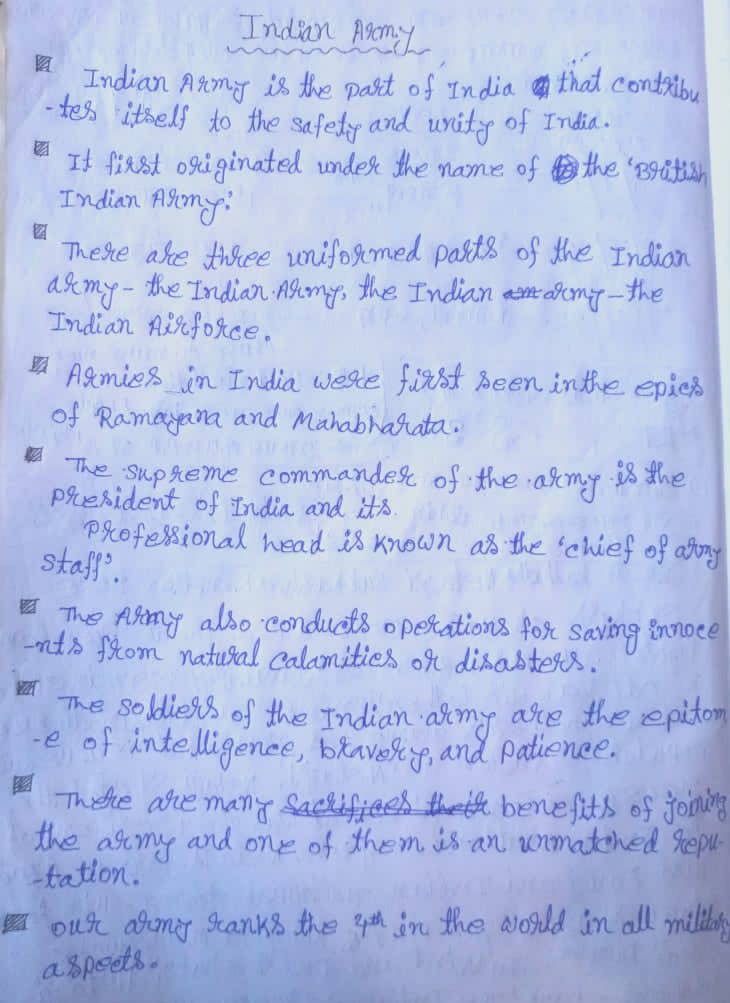 Indian Army
Indian Army is the part of India that contribu
-tes itself to the safety and unity of India.
It first originated under the name of the 'British
Indian Army.'
There are three uniformed parts of the Indian
army - the Indian Army, the Indian army - the
Indian Airforce.
Armies in India were first seen in the epics
of Ramayana and Mahabharata.
The supreme commander of the army is the
president of India and its.
Professional head is known as the 'chief of army
staff'.
The Army also conducts operations for saving innoce
-nts from natural calamities or disasters.
The soldiers of the Indian army are the epitom
-e of intelligence, bravery, and patience.
There are many sacrifices their benefits of joining
the army and one of them is an unmatched repu-
-tation.
our army ranks the 4th in the world in all military
aspects.